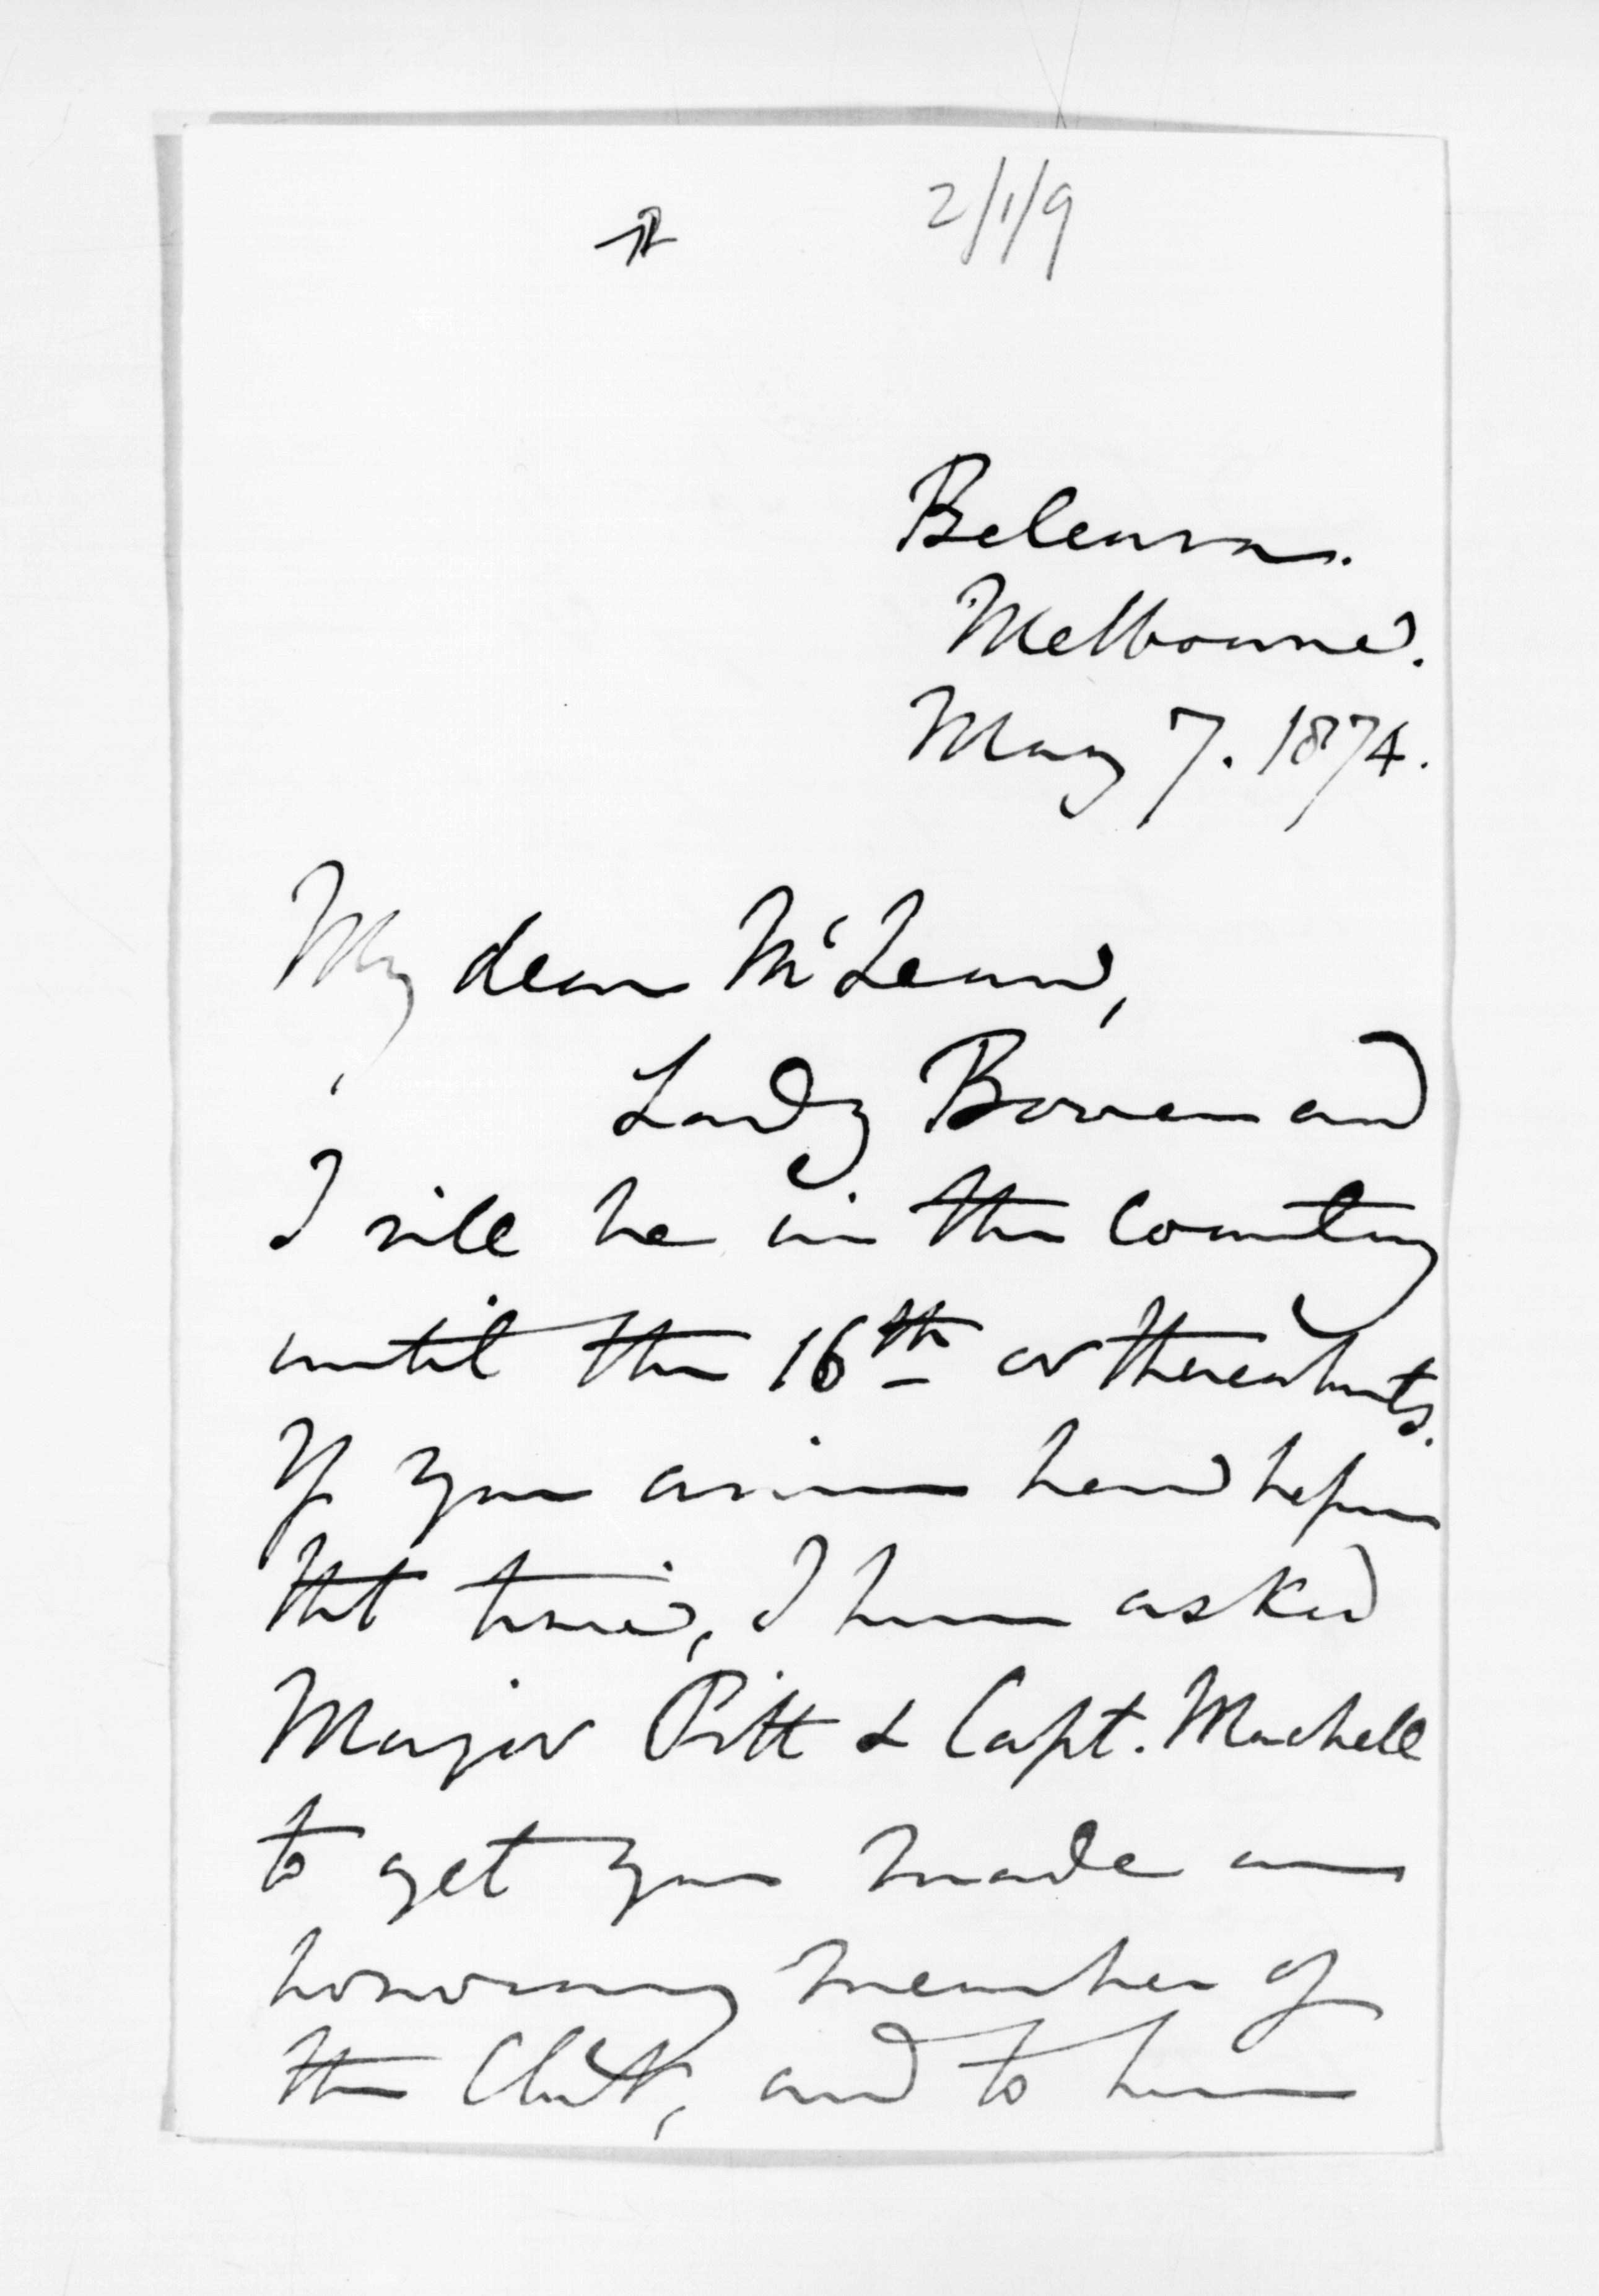 2/1/9
Beleura.
Melbourne.
May 7. 1874.
My dear McLean,
Lady Bowen and
I will be in the Country
until the 16th or thereabouts.
If you arrive here before
that time, I have asked
Major Pitt & Capt. Machell
to get you made an
honorary member of
the Club, and to have